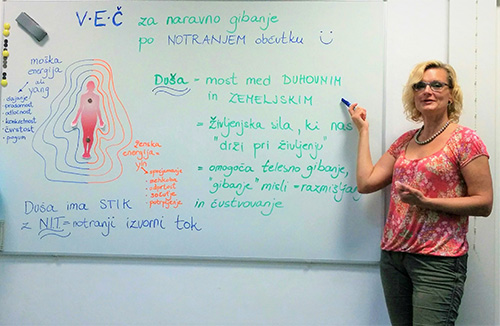 V·E·Č za naravno gibanje
po NOTRANJEM občutku
moška
energija
ali
yang
dajanje
prisotnost
odločnost
konkretnost
čvrstost
pogum
Duša = most med DUHOVNIM
in ZEMELJSKIM
= življenjska sila, ki nas
"drži pri življenju"
= omogoča telesno gibanje,
"gibanje" misli = razmišljanje
in čustvovanje
ženska
energija =
yin
sprejemanje
mehkoba
odprtost
sočutje
potrpljenje
Duša ima STIK
z NIT = notranji izvorni tok